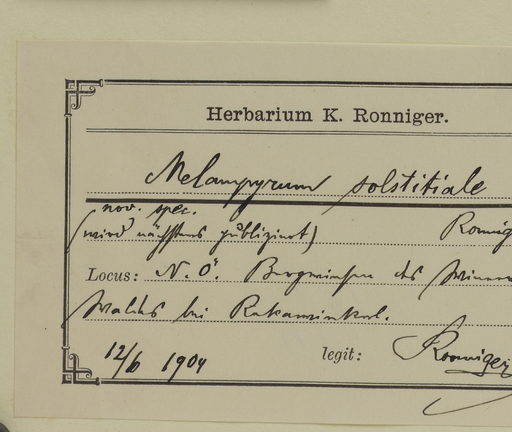 Herbarium K. Ronniger.
Melampyrum solstitiale
nov. spec.
(wird nächstens publiziert) Ronnig
Locus: N. Ö. Bergwiesen des Wiener
Waldes bei Rekawinkel.
12/6 1904 legit: Ronniger